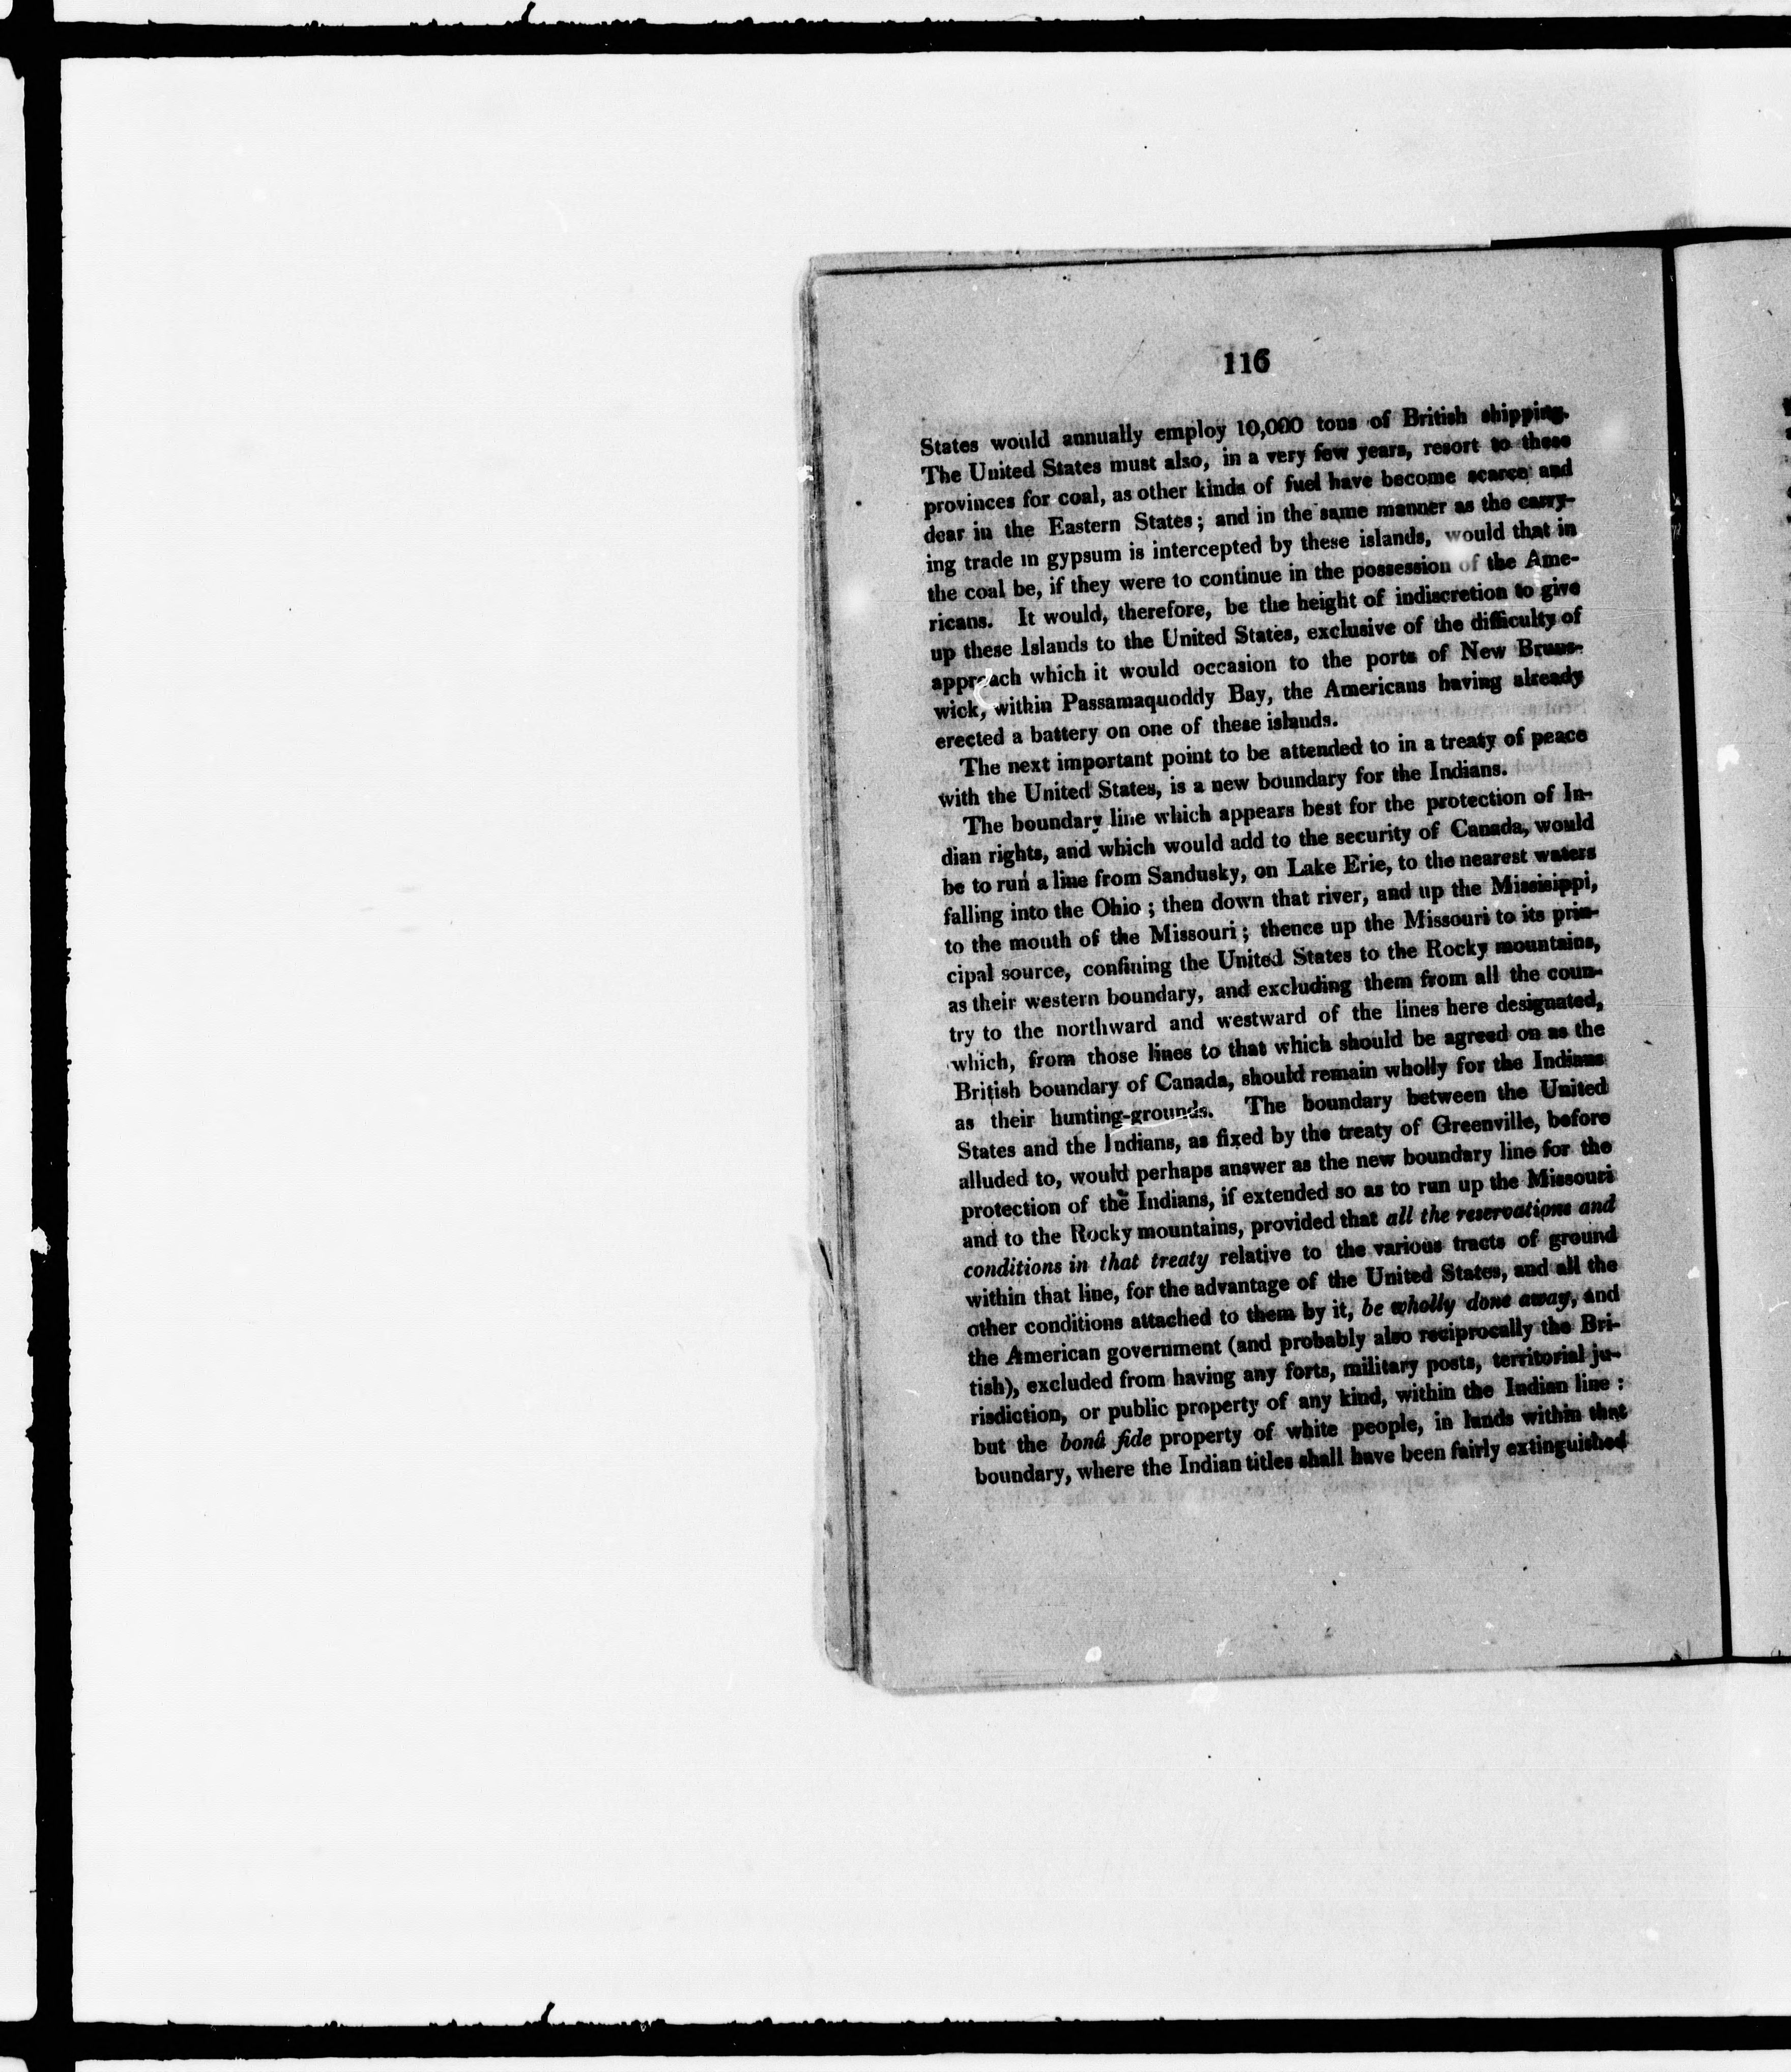 116
States would annually employ 10,000 tons of British shipping.
The United States must also, in a very few years, resort to these
provinces for coal, as other kinds of fuel have become scarce and
dear in the Eastern States; and in the same manner as the carry-
ing trade in gypsum is intercepted by these islands, would that in
the coal be, if they were to continue in the possession of the Ame-
ricans. It would, therefore, be the height of indiscretion to give
up these Islands to the United States, exclusive of the difficulty of
approach which it would occasion to the ports of New Bruns-
wick, within Passamaquoddy Bay, the Americans having already
erected a battery on one of these islands.
The next important point to be attended to in a treaty of peace
with the United States, is a new boundary for the Indians.
The boundary line which appears best for the protection of In-
dian rights, and which would add to the security of Canada, would
be to run a line from Sandusky, on Lake Erie, to the nearest waters
falling into the Ohio; then down that river, and up the Missisippi,
to the mouth of the Missouri; thence up the Missouri to its prin-
cipal source, confining the United States to the Rocky mountains,
as their western boundary, and excluding them from all the coun-
try to the northward and westward of the lines here designated,
which, from those lines to that which should be agreed on as the
British boundary of Canada, should remain wholly for the Indians
as their hunting-grounds. The boundary between the United
States and the Indians, as fixed by the treaty of Greenville, before
alluded to, would perhaps answer as the new boundary line for the
protection of the Indians, if extended so as to run up the Missouri
and to the Rocky mountains, provided that all the reservations and
conditions in that treaty relative to the various tracts of ground
within that line, for the advantage of the United States, and all the
other conditions attached to them by it, be wholly done away, and
the American government (and probably also reciprocally the Bri-
tish), excluded from having any forts, military posts, territorial ju-
risdiction, or public property of any kind, within the Indian line:
but the bonâ fide property of white people, in lands within that
boundary, where the Indian titles shall have been fairly extinguished